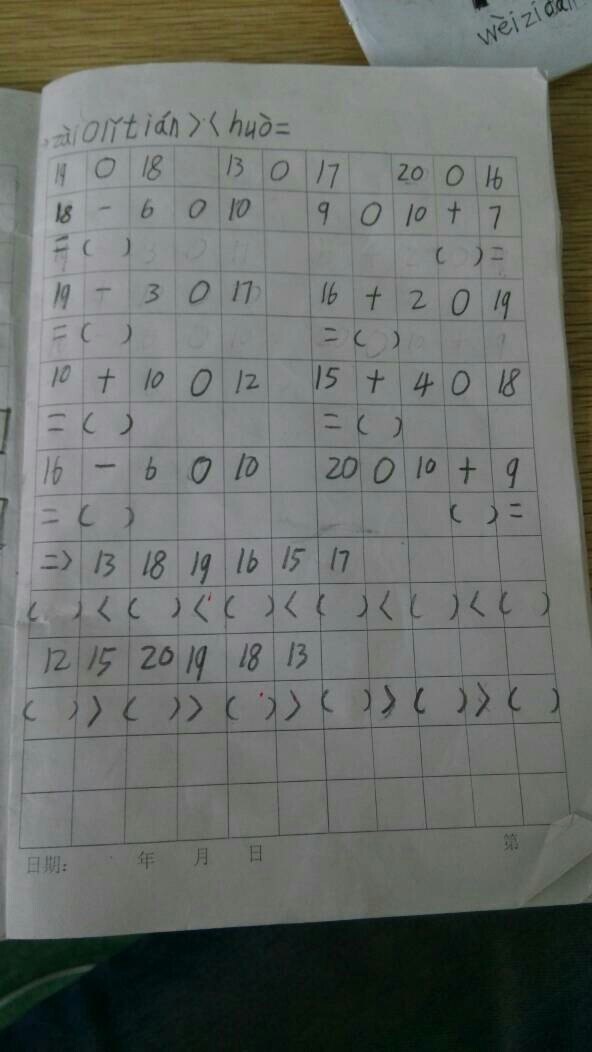 wèizidàn
zài O lǐ tián > < huò =
19 O 18 13 O 17 20 O 16
18 - 6 O 10 9 O 10 + 7
= ( ) ( ) =
19 - 3 O 17 16 + 2 O 19
= ( ) = ( )
10 + 10 O 12 15 + 4 O 18
= ( ) = ( )
16 - 6 O 10 20 O 10 + 9
= ( ) ( ) =
=> 13 18 19 16 15 17
( ) < ( ) < ( ) < ( ) < ( ) < ( )
12 15 20 19 18 13
( ) > ( ) > ( ) > ( ) > ( ) > ( )
日期: 年 月 日 第